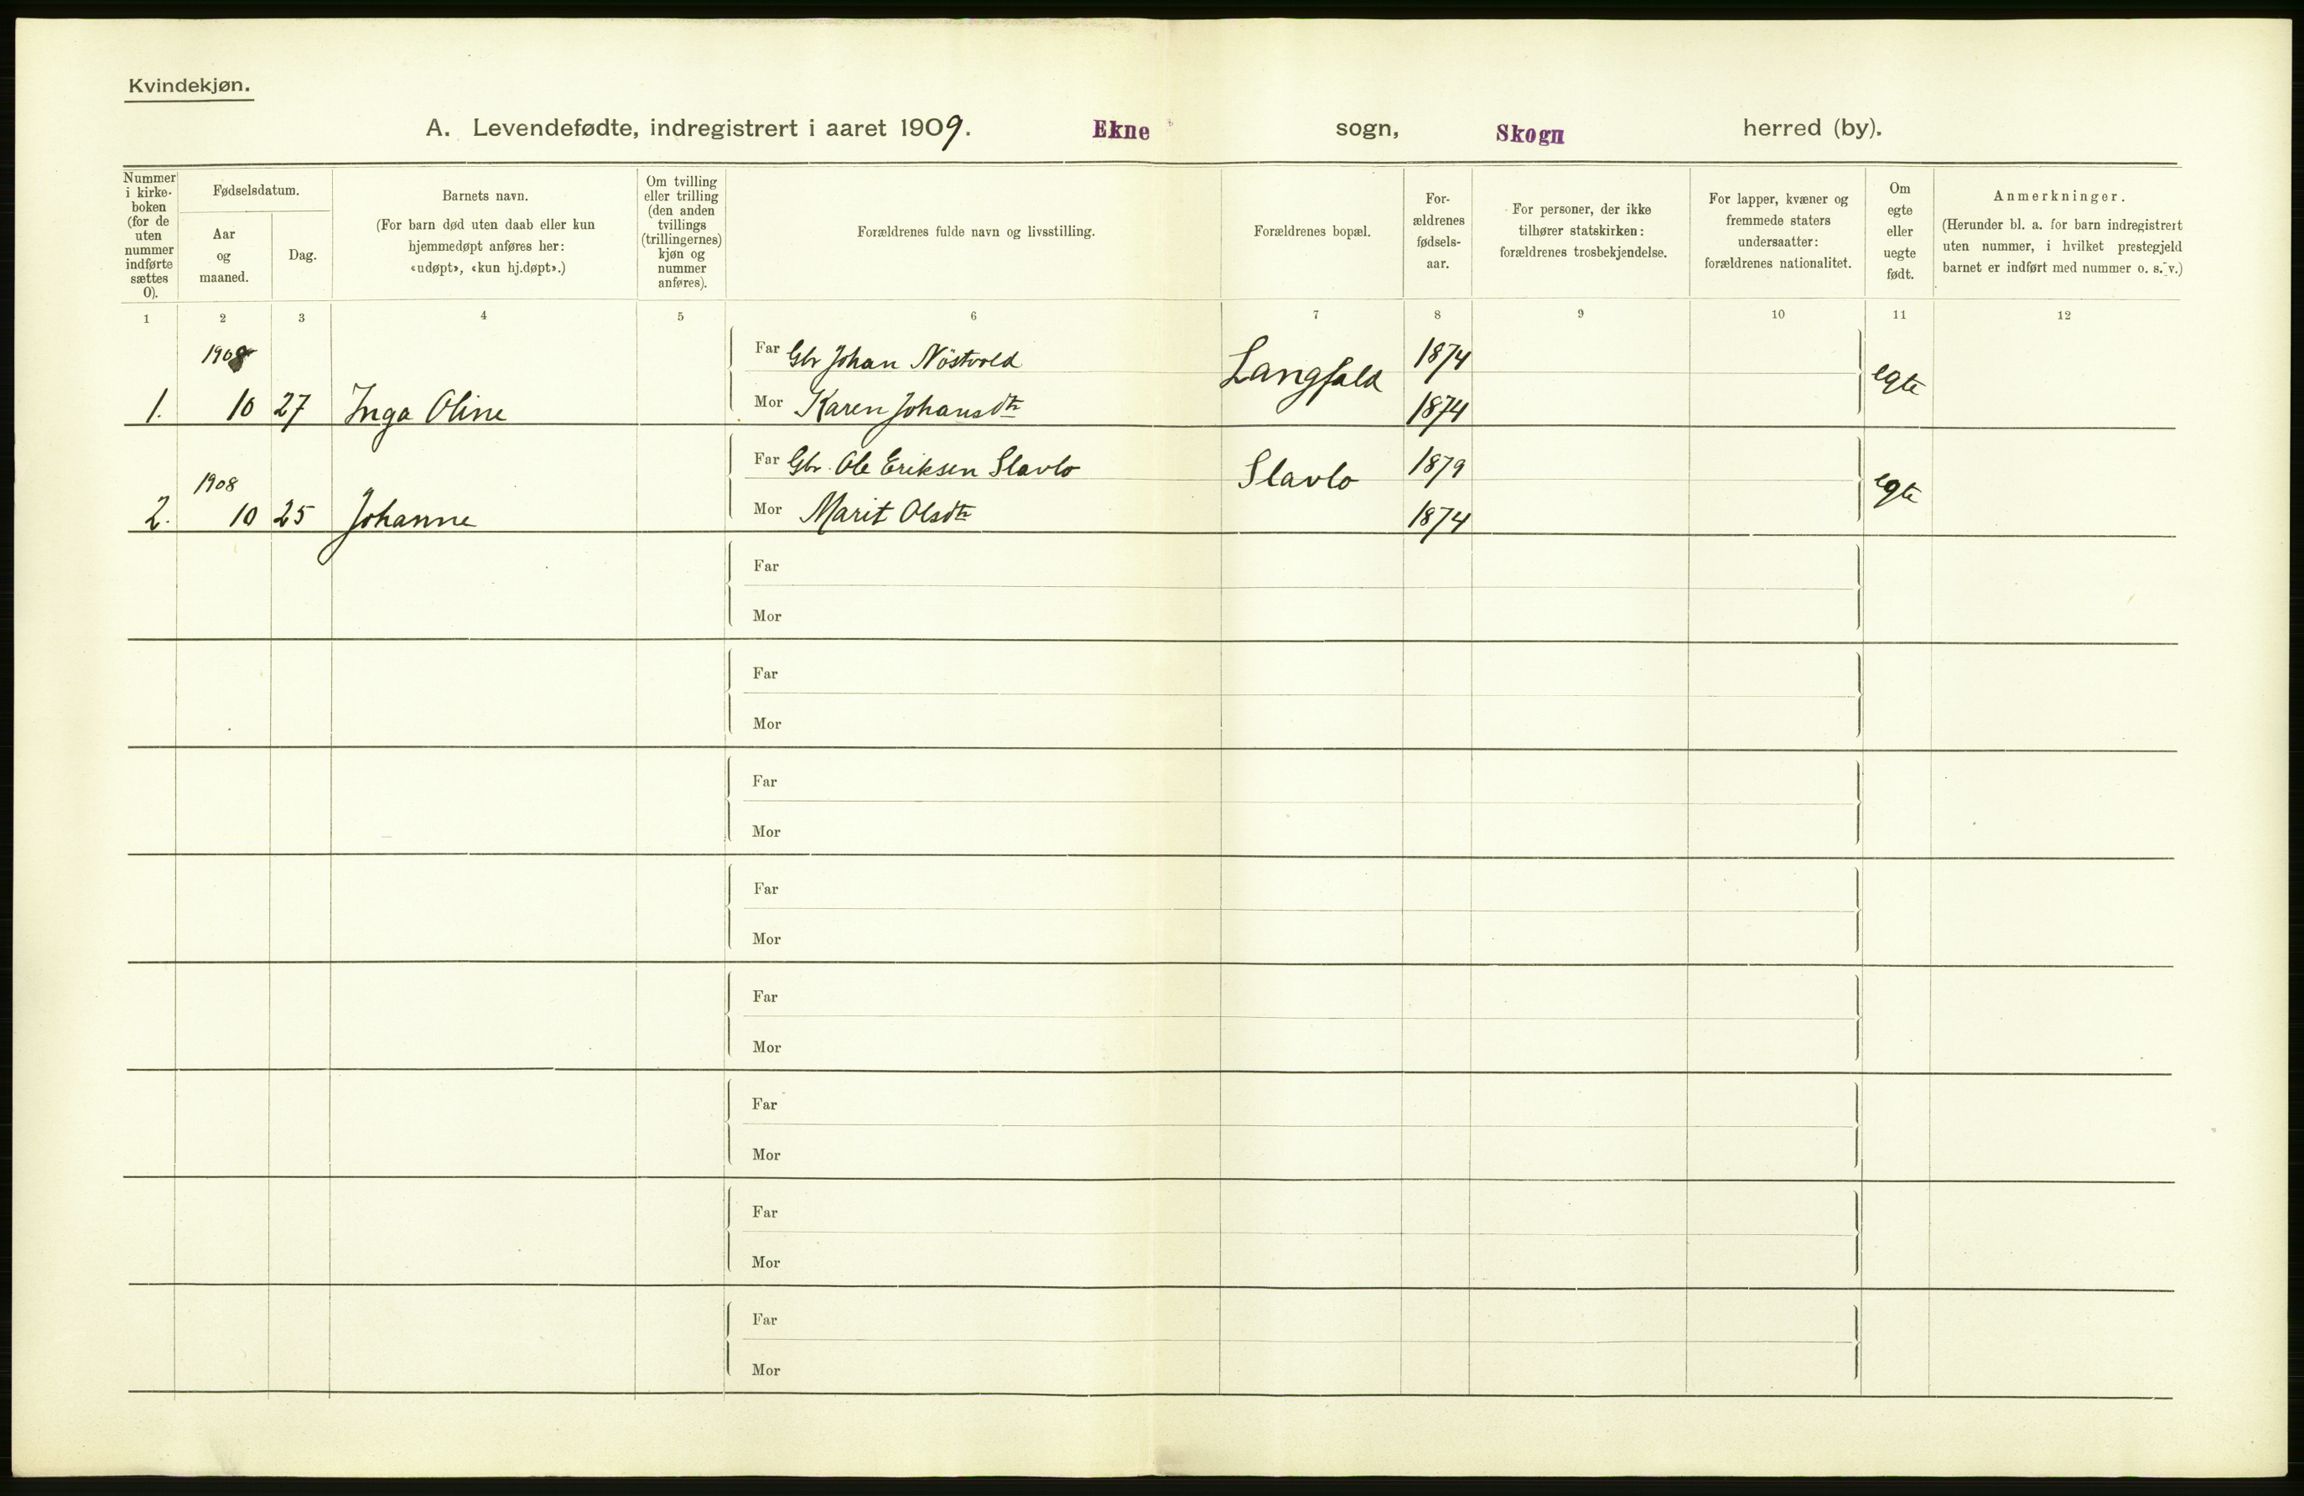 Kvindekjøn.
A. Levendefødte, indregistrert i aaret 1909. Ekne sogn, Skogn herred (by).
Nummer i kirkeboken (for de uten nummer indførte sættes 0).
Fødselsdatum.
Aar og maaned.
Dag.
Barnets navn.
(For barn død uten daab eller kun
hjemmedøpt anføres her:
«udøpt», «kun hj.døpt».)
Om tvilling
eller trilling
(den anden
tvillings
(trillingernes)
kjøn og
nummer
anføres).
Forældrenes fulde navn og livsstilling.
Forældrenes bopæl.
For-
ældrenes
fødsels-
aar.
For personer, der ikke
tilhører statskirken:
forældrenes trosbekjendelse.
For lapper, kvæner og
fremmede staters
undersaatter:
forældrenes nationalitet.
Om
egte
eller
uegte
født.
Anmerkninger.
(Herunder bl. a. for barn indregistrert
uten nummer, i hvilket prestegjeld
barnet er indført med nummer o. s. v.)
1 2 3 4 5 6 7 8 9 10 11 12
1908 Far Gbr Johan Nöstvold Langfald 1874 egte
1. 10 27 Inga Oline Mor Karen Johansdtr 1874
1908 Far Gbr. Ole Eriksen Slavlo Slavlo 1879 egte
2. 10 25 Johanne Mor Marit Olsdtr 1874
Far
Mor
Far
Mor
Far
Mor
Far
Mor
Far
Mor
Far
Mor
Far
Mor
Far
Mor